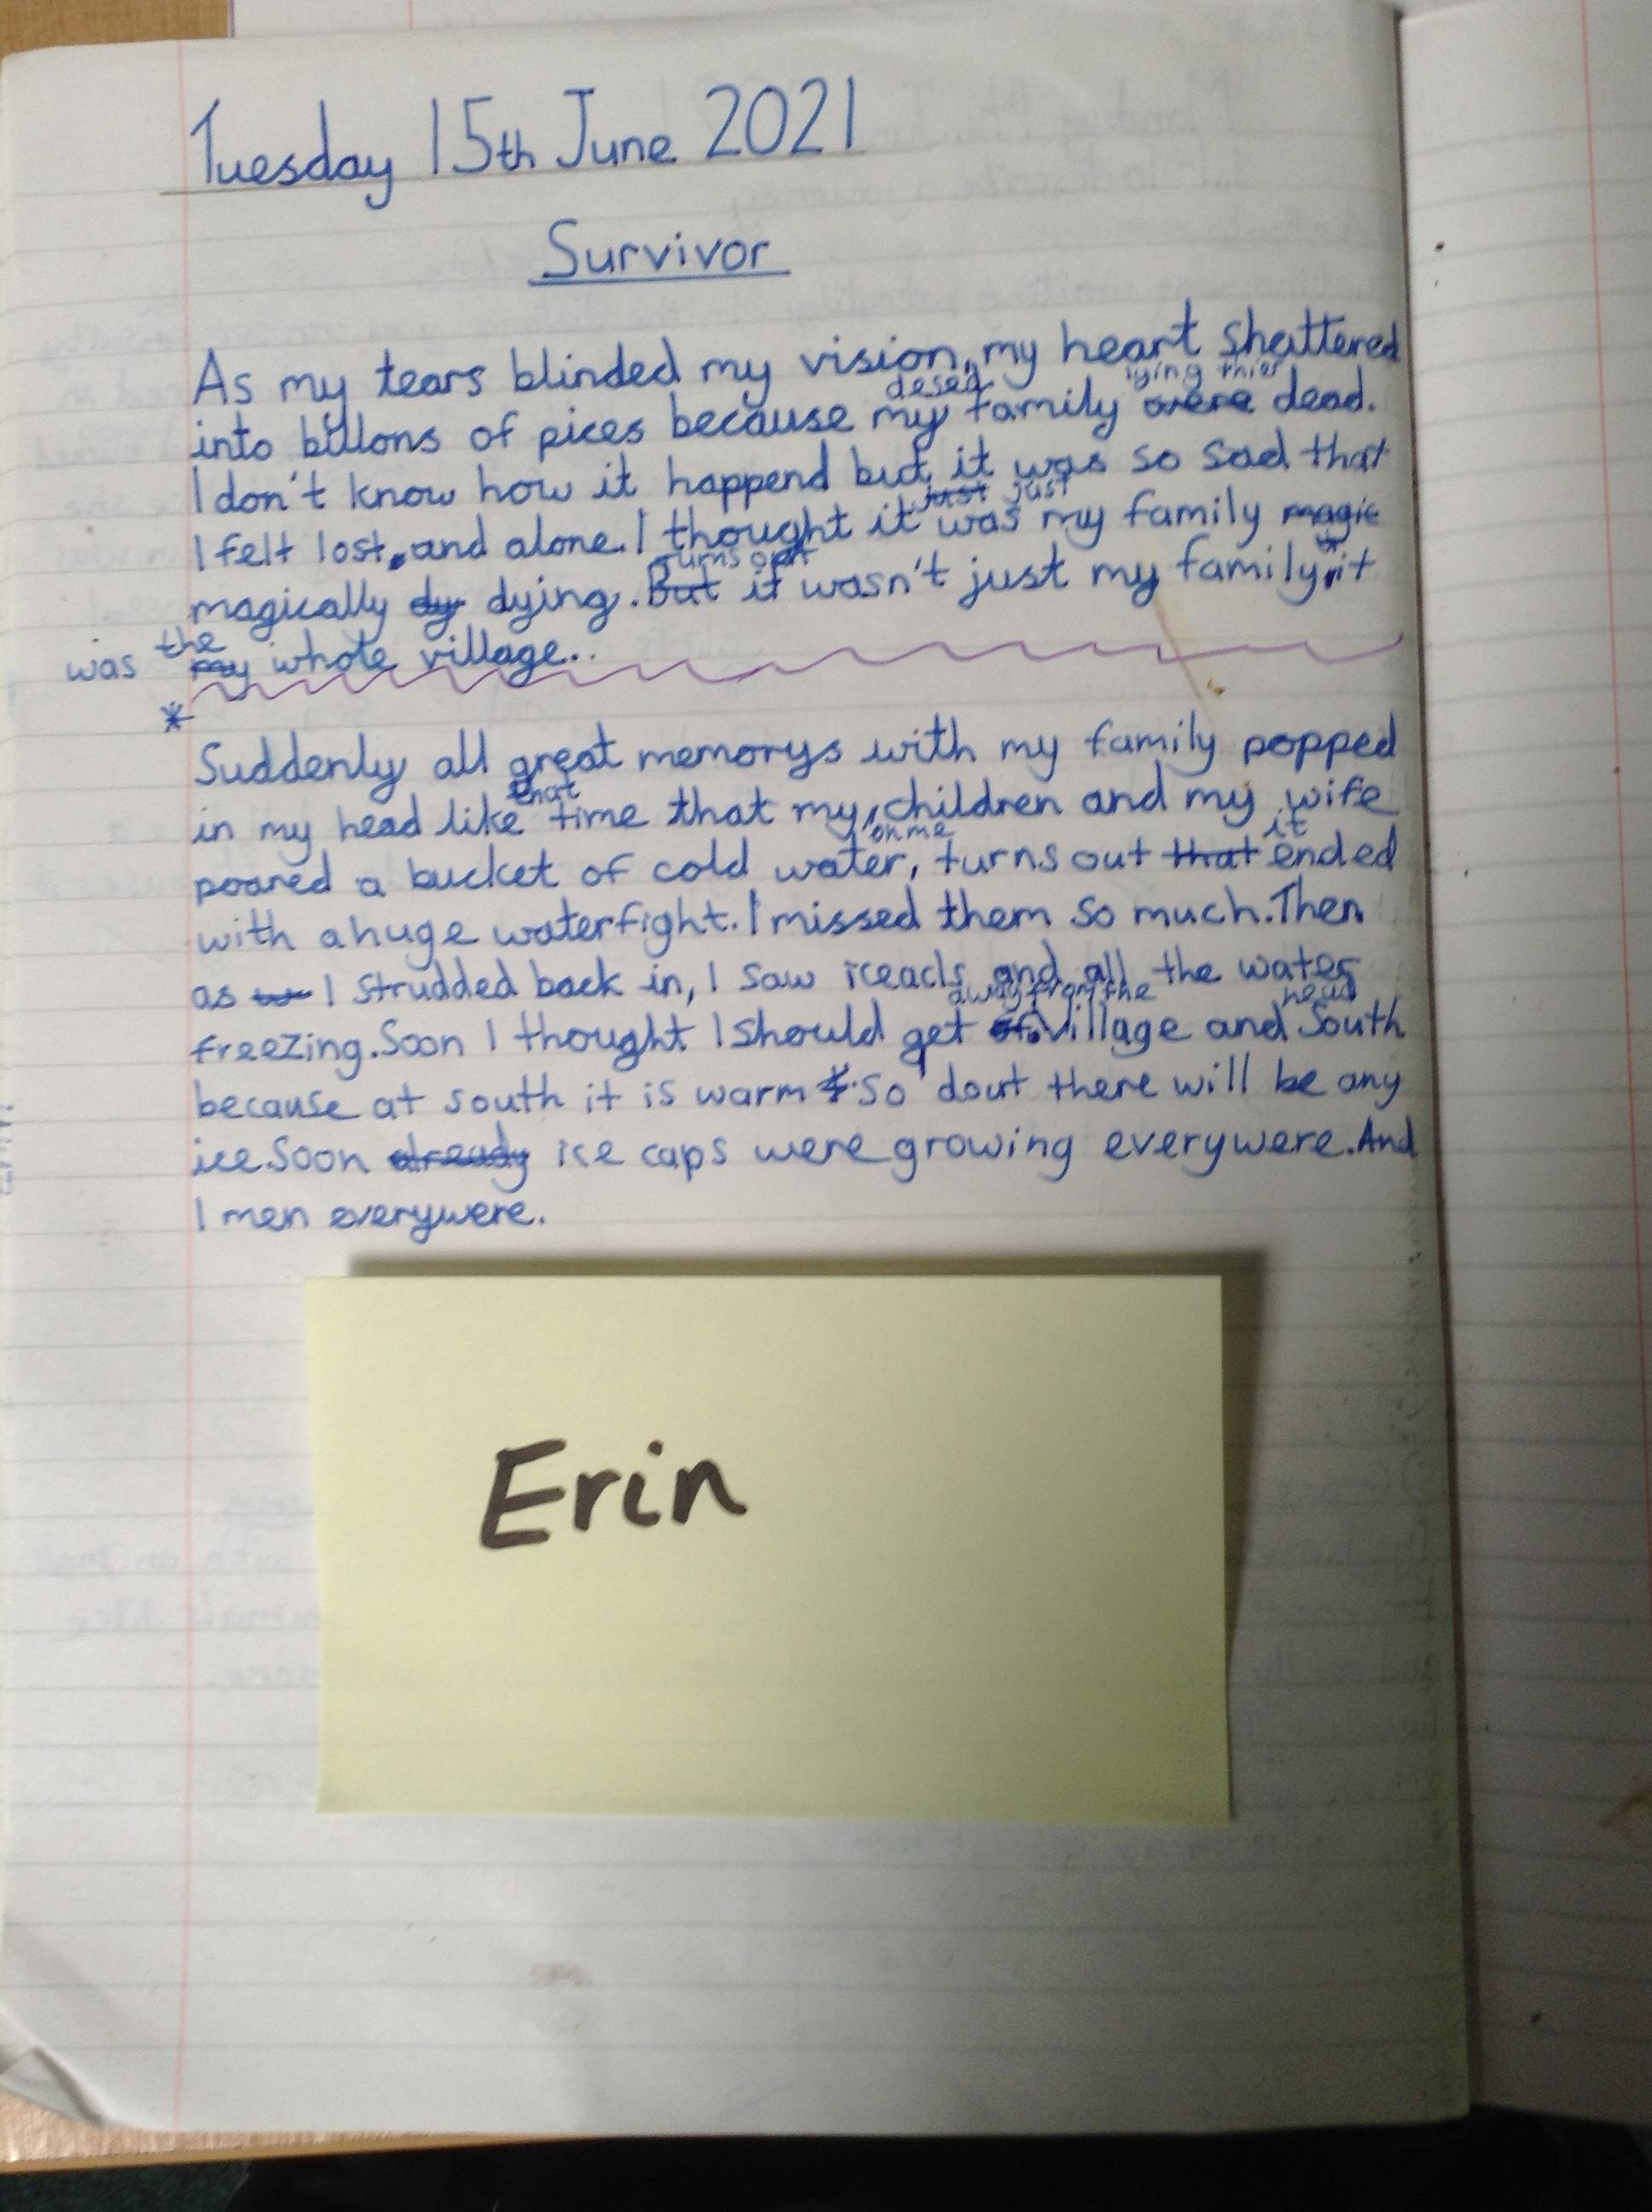 Tuesday 15th June 2021
Survivor
As my tears blinded my vision, my heart shattered
desed lying thier
into billons of pices because my family were dead.
I don't know how it happend but it was so sad that
just just
I felt lost, and alone. I thought it was my family magic
Turns out
magically dy dying. But it wasn't just my family, it
the
was my whole village..
*
Suddenly all great memorys with my family popped
that
in my head like time that my, children and my wife
on me it
poared a bucket of cold water, turns out that ended
with a huge waterfight. I missed them so much. Then
as I strudded back in, I saw iceacls and all the water
away from the head
freezing. Soon I thought I should get of. Village and South
because at south it is warm so I dout there will be any
ice. Soon already ice caps were growing everywere. And
I men everywere.
Erin